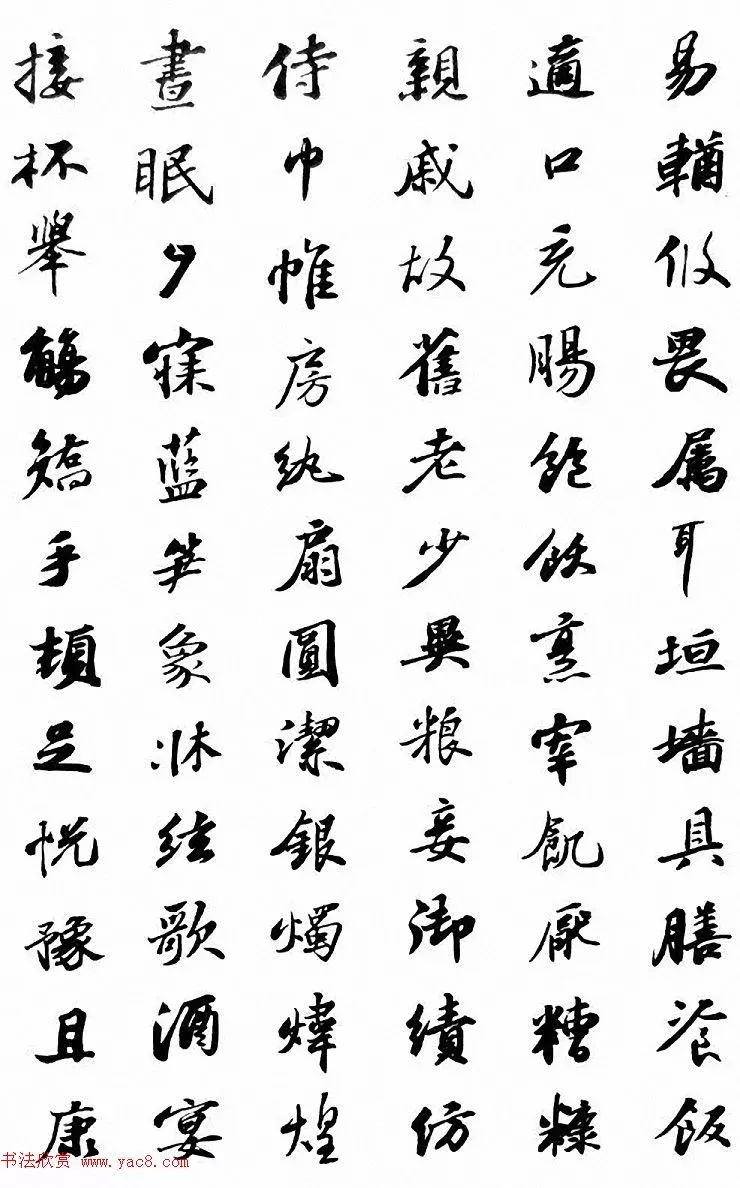 易輶攸畏属耳垣墙具膳飡飯
適口充腸飽飫烹宰飢厭糟糠
親戚故舊老少異粮妾御績紡
侍巾帷房紈扇圓潔銀燭煒煌
晝眠夕寐藍笋象床絃歌酒宴
接杯舉觴矯手頓足悦豫且康
书法欣赏 www.yac8.com